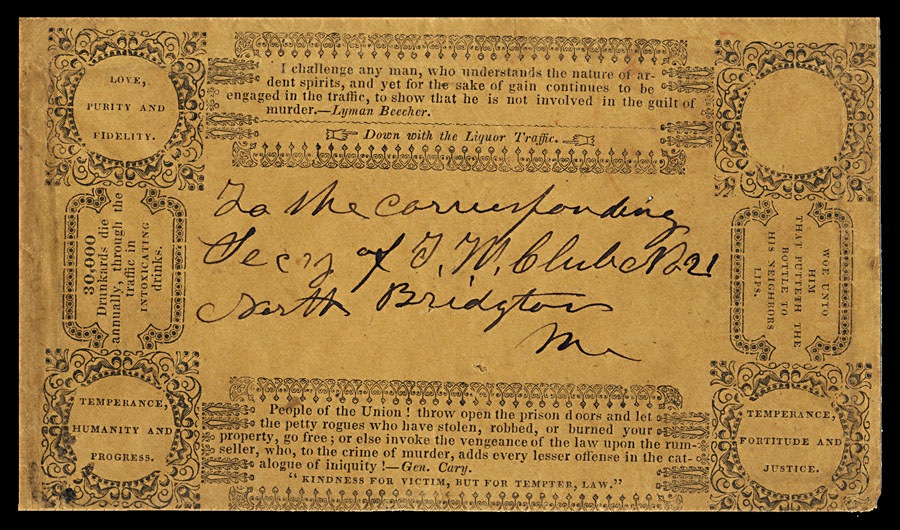 LOVE,
PURITY AND
FIDELITY.
I challenge any man, who understands the nature of ar-
dent spirits, and yet for the sake of gain continues to be
engaged in the traffic, to show that he is not involved in the guilt of
murder.—Lyman Beecher.
Down with the Liquor Traffic.
30,000
Drunkards die
annually, through the
traffic in
INTOXICATING
drinks.
To the corresponding
Secy of T. W. Club No 21
North Bridgton
Me
WOE UNTO
HIM
THAT PUTTETH THE
BOTTLE TO
HIS NEIGHBORS
LIPS.
TEMPERANCE,
HUMANITY AND
PROGRESS.
People of the Union! throw open the prison doors and let
the petty rogues who have stolen, robbed, or burned your
property, go free; or else invoke the vengeance of the law upon the rum-
seller, who, to the crime of murder, adds every lesser offense in the cat-
alogue of iniquity!—Gen. Cary.
"KINDNESS FOR VICTIM, BUT FOR TEMPTER, LAW."
TEMPERANCE,
FORTITUDE AND
JUSTICE.